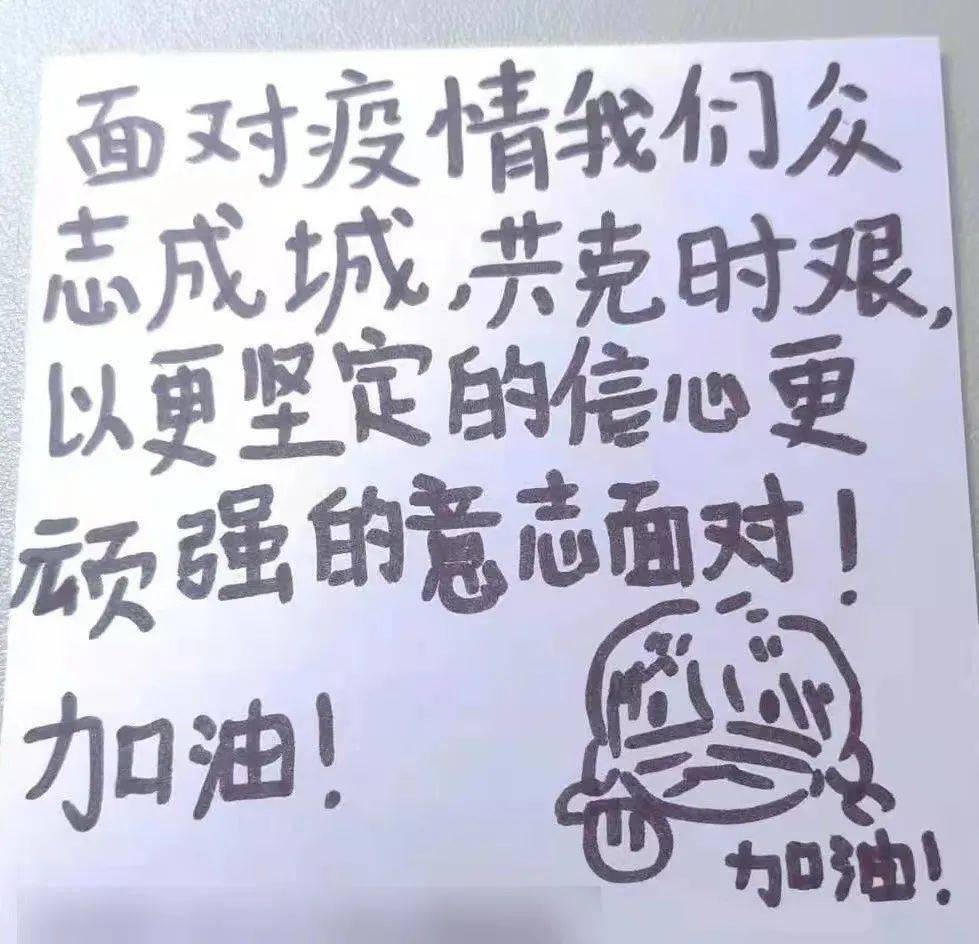 面对疫情我们众
志成城,共克时艰,
以更坚定的信心更
顽强的意志面对!
加油!
加油!